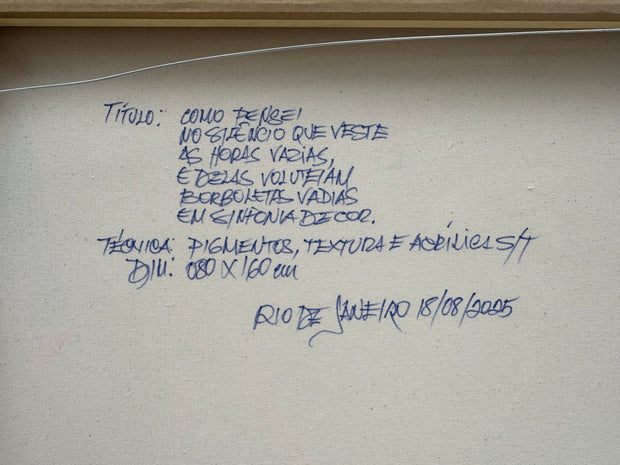 TÍTULO: COMO PENSEI
NO SILÊNCIO QUE VESTE
AS HORAS VAZIAS,
E DELAS VOLUTEIAM
BORBOLETAS VADIAS
EM SINFONIA DE COR.
TÉCNICA: PIGMENTOS, TEXTURA E ACRÍLICA S/T
DIM: 080 X 160 cm
RIO DE JANEIRO 18/08/2025